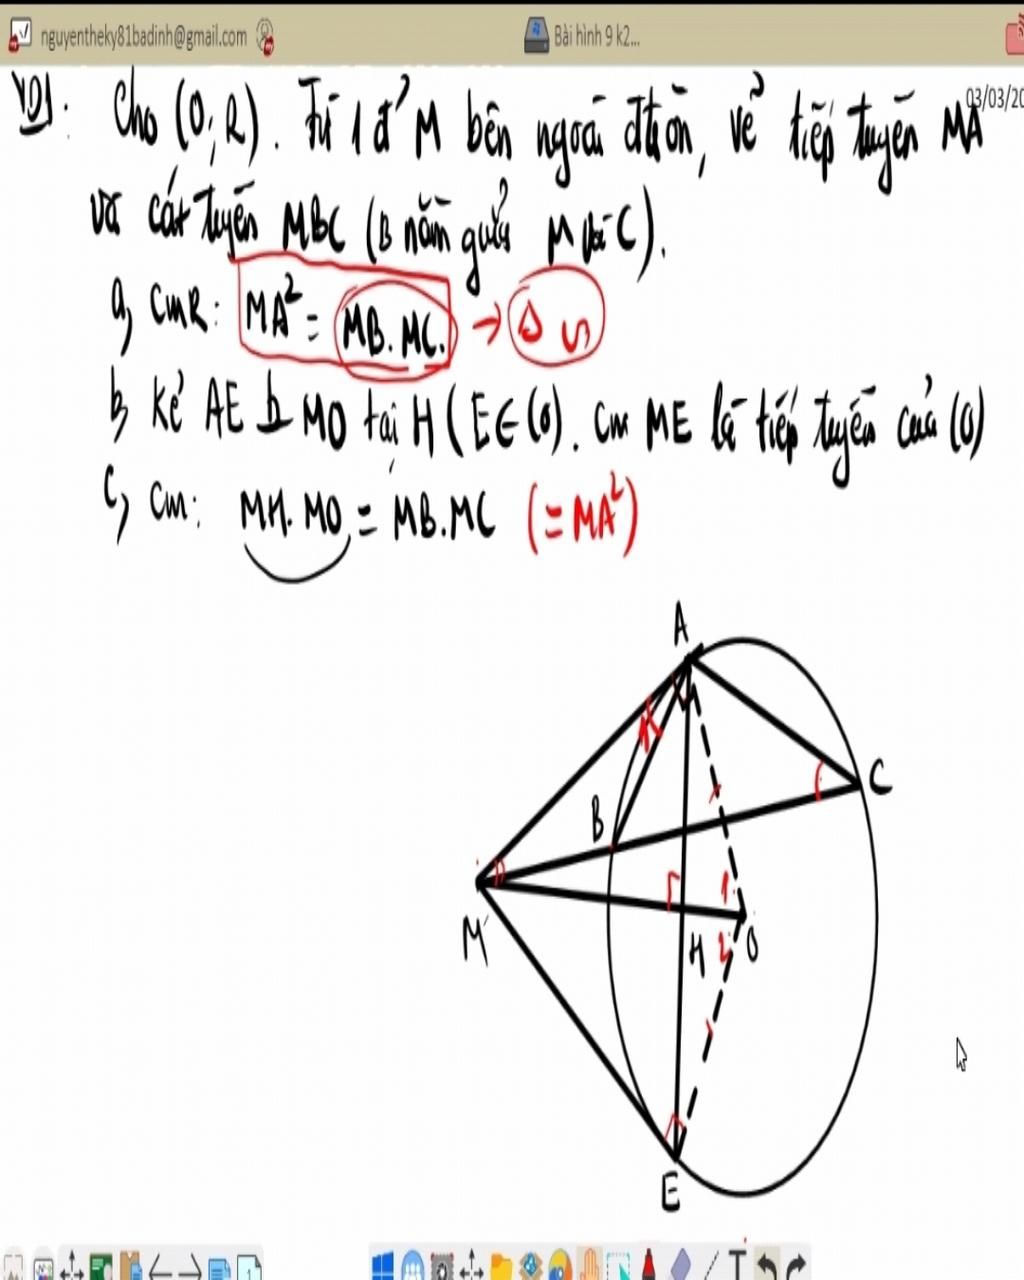 nguyentheky81badinh@gmail.com
Bài hình 9 k2...
03/03/20
VD1. Cho (O;R). Từ 1 đ' M bên ngoài đtròn, vẽ tiếp tuyến MA
và cát tuyến MBC (B nằm giữa M và C).
a, CmR: MA² = MB.MC. → Δ ∽
b, Kẻ AE ⊥ MO tại H (E∈(O). Cm ME là tiếp tuyến của (O)
c, Cm: MH.MO = MB.MC (=MA²)
A
C
B
M
1
H
2
O
E